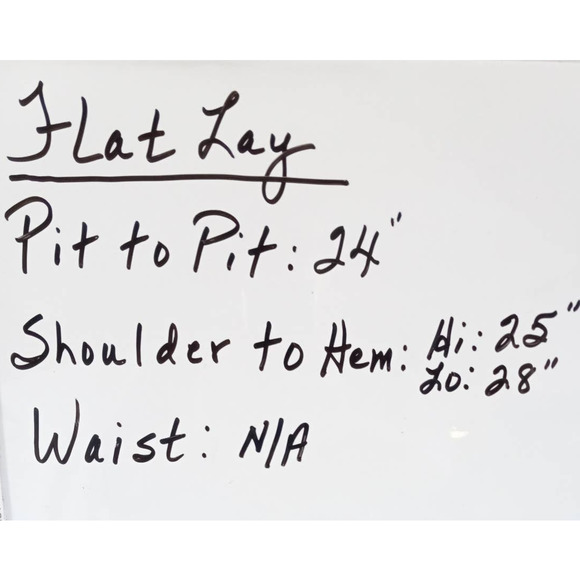 Flat Lay
Pit to Pit: 24"
Shoulder to Hem: Hi: 25"
Lo: 28"
Waist: N/A